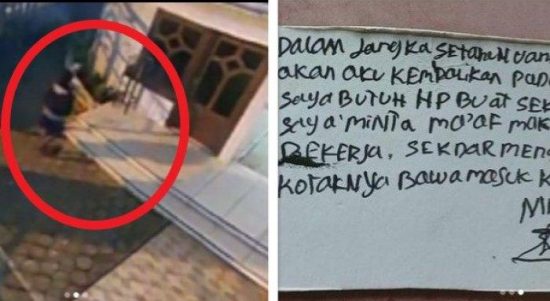 DALAM JANGKA SETAHUN UANG
AKAN AKU KEMBALIKAN PADA
SAYA BUTUH HP BUAT SEK
SAYA MINTA MA'AF MAK
BEKERJA. SEKDAR MEN
KOTAKNYA BAWA MASUK K